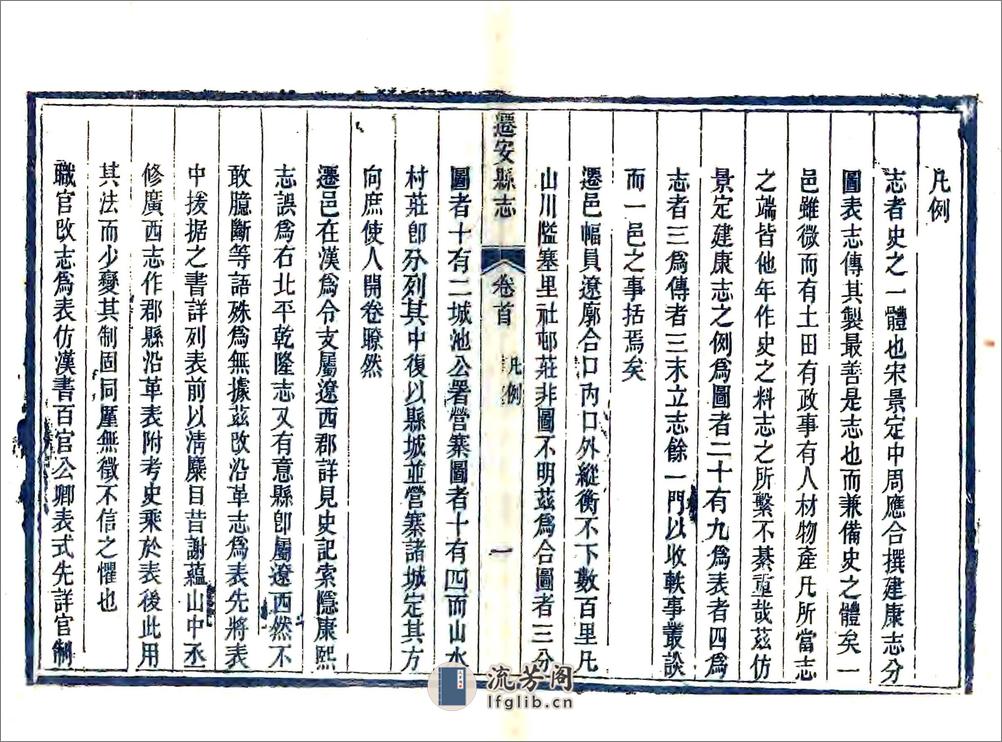 凡例
志者史之一體也宋景定中周應合撰建康志分
圖表志傳其製最善是志也而兼備史之體矣一
邑雖微而有土田有政事有人材物產凡所當志
之端皆他年作史之料志之所繫不綦重哉茲仿
景定建康志之例爲圖者二十有九爲表者四爲
志者三爲傳者三末立志餘一門以收軼事叢談
而一邑之事括焉矣
遷邑幅員遼廓合口內口外縱衡不下數百里凡
山川隘塞里社邨莊非圖不明茲爲合圖者三分
遷安縣志
卷首
凡例
一
圖者十有二城池公署營寨圖者十有四而山水
村莊卽分列其中復以縣城並營寨諸城定其方
向庶使人開卷瞭然
遷邑在漢爲令支屬遼西郡詳見史記索隱康熙
志誤爲右北平乾隆志又有意縣卽屬遼西然不
敢臆斷等語殊爲無據茲改沿革志爲表先將表
中援據之書詳列表前以清麋目昔謝蘊山中丞
修廣西志作郡縣沿革表附考史乘於表後此用
其法而少變其制固同厪無徵不信之懼也
職官改志爲表仿漢書百官公卿表式先詳官制
流芳阁
lfglib.cn